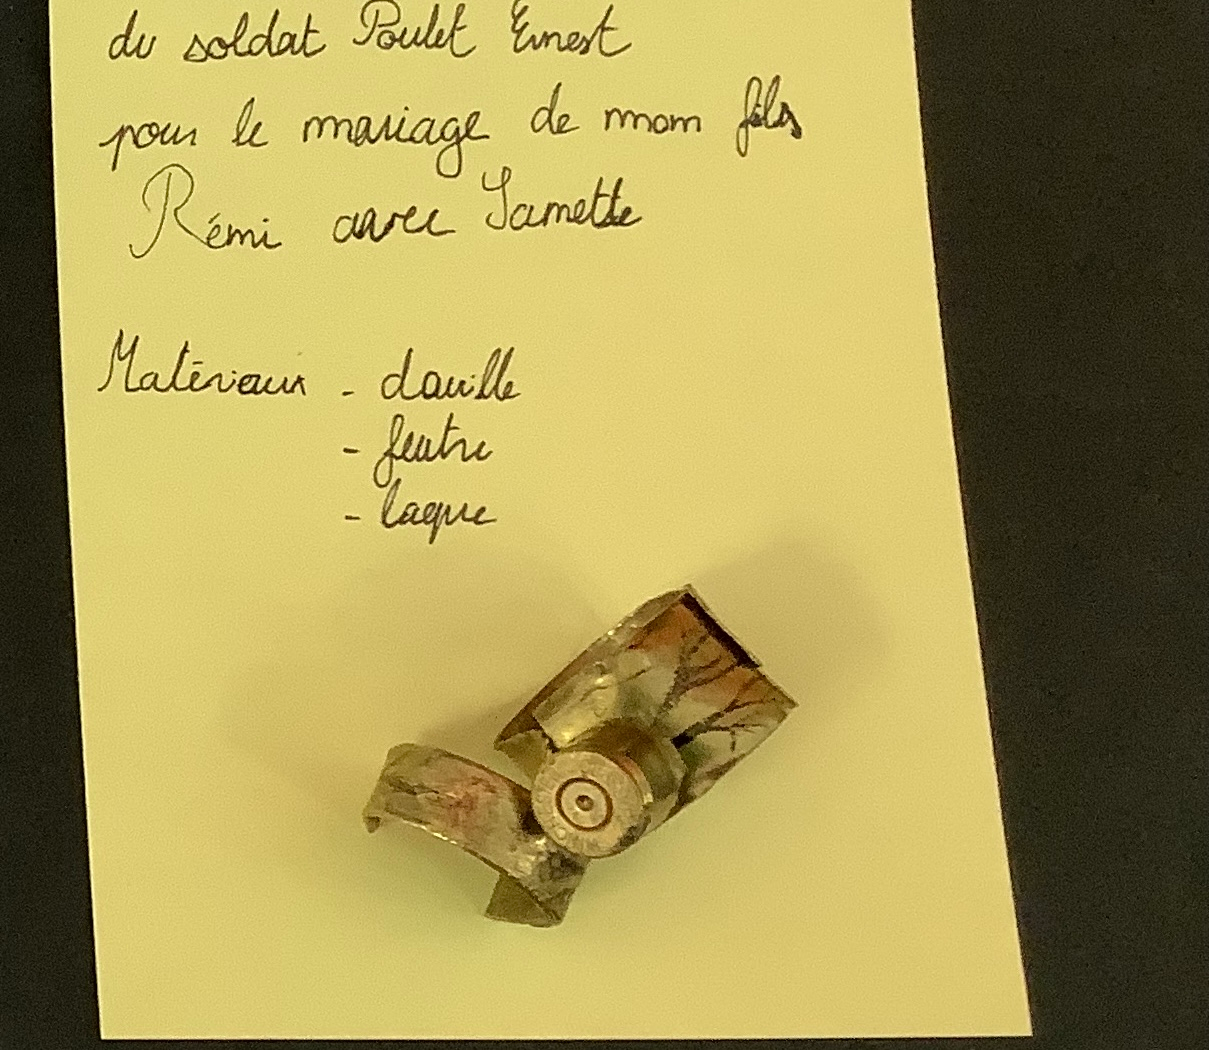 du soldat Poulet Ernest
pour le mariage de mon fils
Rémi avec
Matériaux - douille
- feutre
- laque